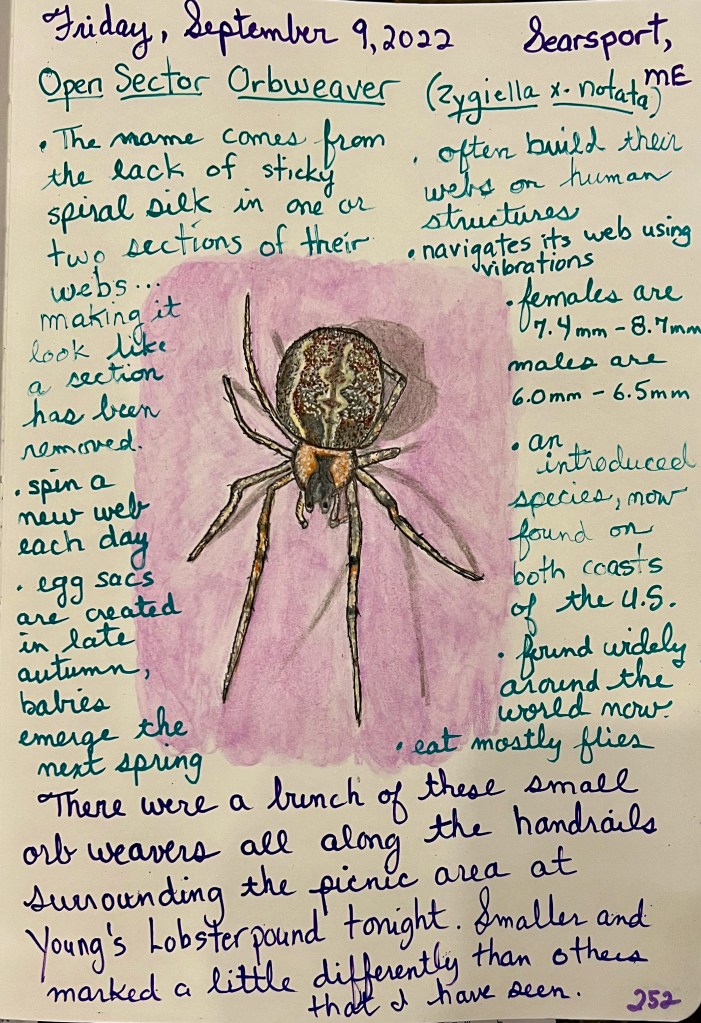 Friday, September 9, 2022 Searsport, ME
Open Sector Orbweaver (Zygiella x. notata)
• The name comes from
the lack of sticky
spiral silk in one or
two sections of their
webs...
making it
look like
a section
has been
removed.
• spin a
new web
each day
• egg sacs
are created
in late
autumn,
babies
emerge the
next spring
• often build their
webs on human
structures
• navigates its web using
vibrations
• females are
7.4mm - 8.7mm
males are
6.0mm - 6.5mm
• an
introduced
species, now
found on
both coasts
of the U.S.
• found widely
around the
world now.
• eat mostly flies
There were a bunch of these small
orb weavers all along the handrails
surrounding the picnic area at
Young's Lobster pound tonight. Smaller and
marked a little differently than others
that I have seen.
252